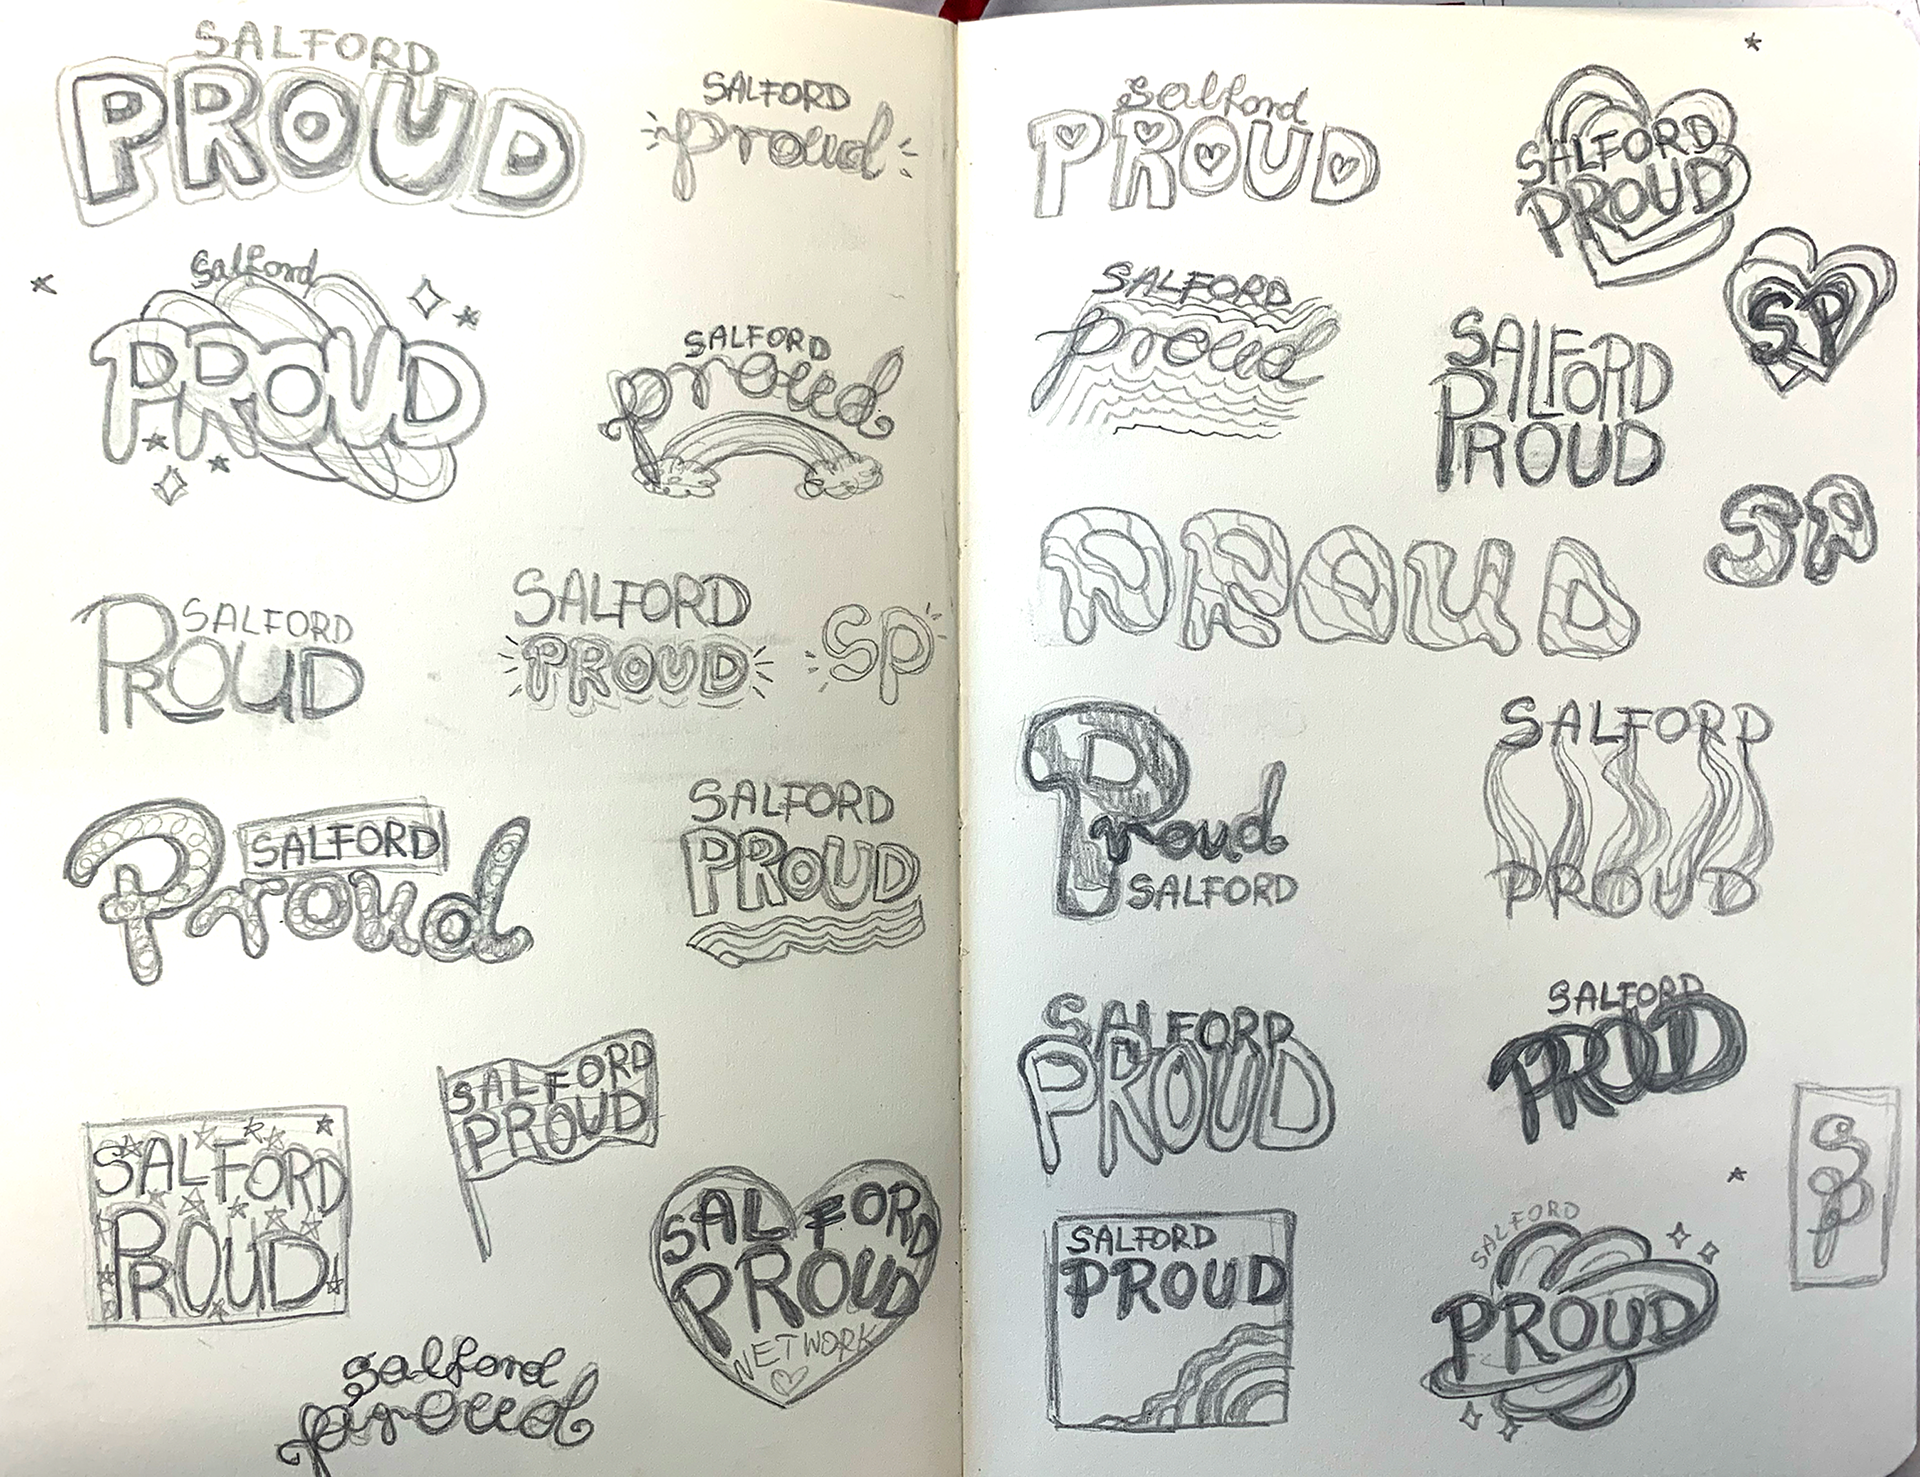 SALFORD
PROUD
SALFORD
proud
Salford
PROUD
SALFORD
proud
PROUD
SALFORD
SALFORD
PROUD
SP
Proud
SALFORD
SALFORD
PROUD
SALFORD
PROUD
SALFORD
PROUD
SALFORD
PROUD
NETWORK
salford
proud
Salford
PROUD
SALFORD
PROUD
SP
SALFORD
proud
SALFORD
PROUD
PROUD
SP
Proud
SALFORD
SALFORD
PROUD
SALFORD
PROUD
SALFORD
PROUD
SP
SALFORD
PROUD
SALFORD
PROUD